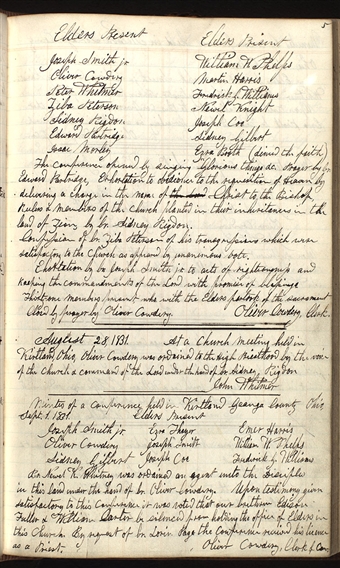 5
Elders Present Elders Present
Joseph Smith jr William W. Phelps
Oliver Cowdery Martin Harris
Peter Whitmer Fredrick G. Williams
Ziba Peterson Newel Knight
Sidney Rigdon Joseph Coe
Edward Partridge Sidney Gilbert
Isaac Morley Ezra Booth (denied the faith)
The Conference opened by singing Glorious things &c. Prayer by br.
Edward Partridge, Exhortation to obedience to the requisition of Heaven by
delivering a charge in the name of the Lord Christ to the Bishop,
Rulers & members of the Church planted in their inheritances in the
land of Zion, by br. Sidney Rigdon.
Confession of br. Ziba Peterson of his transgressions which were
satisfactory to the Church as appeared by unanimous vote.
Exhortation by br. Joseph Smith jr. to acts of righteousness and
keeping the commandments of the Lord with promise of blessings
members present who with the Elders partook of the sacrament
Closed by prayer by Oliver Cowdery. Oliver Cowdery, Clerk.
August 28, 1831. At a Church meeting held in
Kirtland, Ohio, Oliver Cowdery was ordained to the High Priesthood by the voice
of the church & command of the Lord under the hand of br. Sidney Rigdon
John Whitmer
Minutes of a conference held in Kirtland Geauga County Ohio
Sept. 1. 1831. Elders Present
Joseph Smith jr Ezra Thayer Emer Harris
Oliver Cowdery Joseph Smith William W. Phelps
Sidney Gilbert Joseph Coe Frederick G. Williams
Newel K. Whitney was ordained an agent unto the Disciples
in this land under the hand of br. Oliver Cowdery. Upon testimony given
satisfactory to this Conference it was voted that our brethren Edson
Fuller & William Carter be silenced from holding the office of Elders in
this Church. By request of br. Page the Conference received his license
as a Priest. Oliver Cowdery, Clerk of Con.